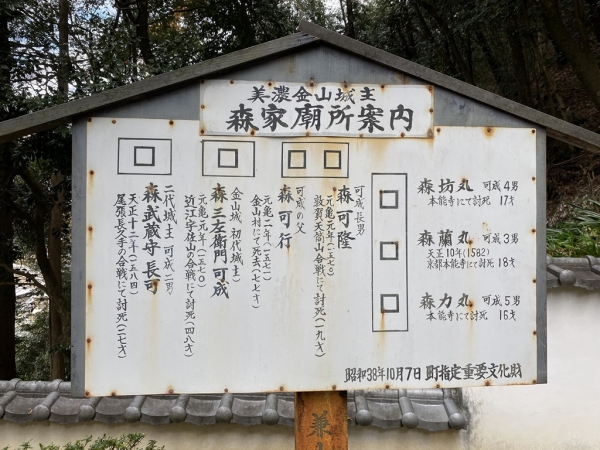 美濃金山城主
森家廟所案内
森坊丸 可成4男
本能寺にて討死 17才
森蘭丸 可成3男
天正10年(1582)
京都本能寺にて討死 18才
森力丸 可成5男
本能寺にて討死 16才
可成長男
森可隆
元亀元年(一五七〇)
敦賀天筒山合戦にて討死(一九才)
可成の父
森可行
元亀二年(一五七一)
金山村にて死去(七七才)
金山城(初代城主)
森三左衛門可成
元亀元年(一五七〇)
近江宇佐山の合戦にて討死(四八才)
二代城主(可成二男)
森武蔵守長可
天正十二年(一五八四)
尾張長久手の合戦にて討死(二七才)
昭和38年10月7日 町指定重要文化財
兼